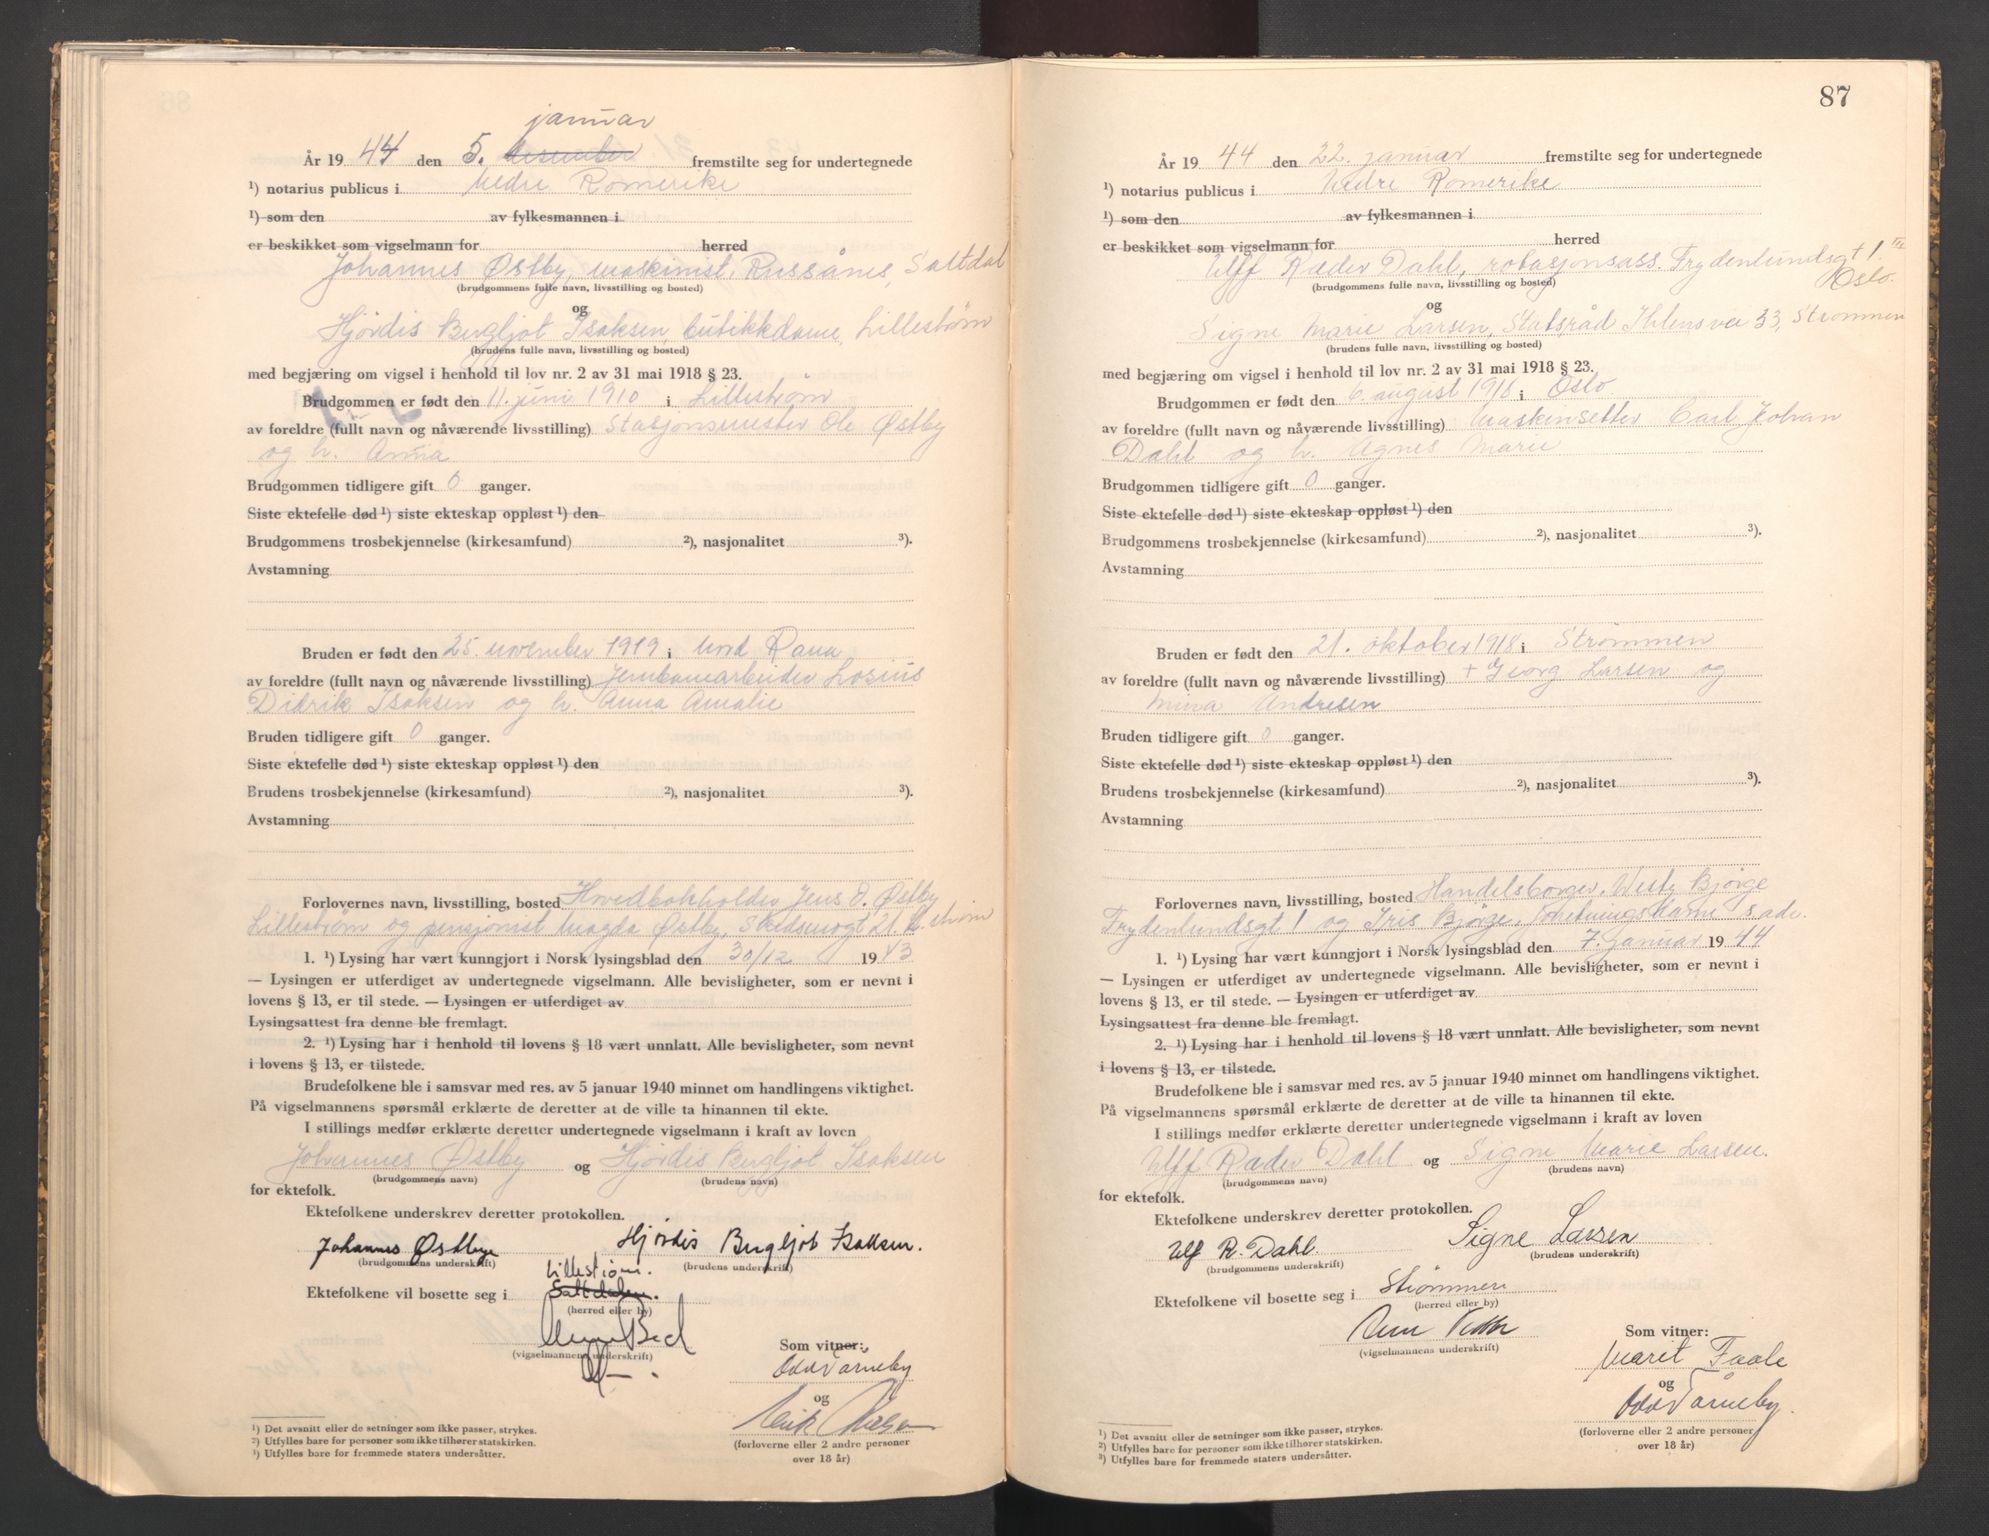 januar
År 1944 den 5. desember fremstilte seg for undertegnede
¹) notarius publicus i Nedre Romerike
¹) som den av fylkesmannen i
er beskikket som vigselmann for herred
Johannes Østby, maskinist, Russånes, Saltdal
(brudgommens fulle navn, livsstilling og bosted)
og
Hjördis Bergljot Isaksen, butikkdame, Lillestrøm
(brudens fulle navn, livsstilling og bosted)
med begjæring om vigsel i henhold til lov nr. 2 av 31 mai 1918 § 23.
Brudgommen er født den 11. juni 1910 i Lillestrøm
av foreldre (fullt navn og nåværende livsstilling) Stasjonsmester Ole Østby
og h. Anna
Brudgommen tidligere gift 0 ganger.
Siste ektefelle død ¹) siste ekteskap oppløst ¹) den
Brudgommens trosbekjennelse (kirkesamfund) ²), nasjonalitet ³).
Avstamning
Bruden er født den 25. november 1919 i Nord Rana
av foreldre (fullt navn og nåværende livsstilling) Jernbanearbeider Losius
Didrik Isaksen og h. Anna Amalie
Bruden tidligere gift 0 ganger.
Siste ektefelle død ¹) siste ekteskap oppløst ¹) den
Brudens trosbekjennelse (kirkesamfund) ²), nasjonalitet ³).
Avstamning
Forlovernes navn, livsstilling, bosted Hovedbokholder Jens O. Østby
Lillestrøm og pensjonist Magda Østby, Skedsmogt 21. L.strøm
1. ¹) Lysing har vært kunngjort i Norsk lysingsblad den 30/12 1943
— Lysingen er utferdiget av undertegnede vigselmann. Alle bevisligheter, som er nevnt i
lovens § 13, er til stede. — Lysingen er utferdiget av
Lysingsattest fra denne ble fremlagt.
2. ¹) Lysing har i henhold til lovens § 18 vært unnlatt. Alle bevisligheter, som nevnt
i lovens § 13, er tilstede.
Brudefolkene ble i samsvar med res. av 5 januar 1940 minnet om handlingens viktighet.
På vigselmannens spørsmål erklærte de deretter at de ville ta hinannen til ekte.
I stillings medfør erklærte deretter undertegnede vigselmann i kraft av loven
Johannes Østby og Hjördis Bergljot Isaksen
(brudgommens navn) (brudens navn)
for ektefolk.
Ektefolkene underskrev deretter protokollen.
Johannes Østbye Hjördis Bergljot Isaksen.
(brudgommens underskrift) (brudens underskrift)
Lillestrøm.
Ektefolkene vil bosette seg i Saltdalen.
(herred eller by)
(vigselmannens underskrift)
Som vitner:
Odd Tårneby
og
(forloverne eller 2 andre personer
over 18 år)
¹) Det avsnitt eller de setninger som ikke passer, strykes.
²) Utfylles bare for personer som ikke tilhører statskirken.
³) Utfylles bare for fremmede staters undersåtter.
87
År 1944 den 22. januar fremstilte seg for undertegnede
¹) notarius publicus i Nedre Romerike
¹) som den av fylkesmannen i
er beskikket som vigselmann for herred
Ulff Ræder Dahl, rotasjonsass. Frydenlundsgt 1. III
Oslo.
(brudgommens fulle navn, livsstilling og bosted)
og
Signe Marie Larsen, Statsråd Ihlens vei 33, Strømmen
(brudens fulle navn, livsstilling og bosted)
med begjæring om vigsel i henhold til lov nr. 2 av 31 mai 1918 § 23.
Brudgommen er født den 6. august 1918 i Oslo
av foreldre (fullt navn og nåværende livsstilling) Maskinsetter Carl Johan
Dahl og h. Agnes Marie
Brudgommen tidligere gift 0 ganger.
Siste ektefelle død ¹) siste ekteskap oppløst ¹) den
Brudgommens trosbekjennelse (kirkesamfund) ²), nasjonalitet ³).
Avstamning
Bruden er født den 21. oktober 1918 i Strømmen
av foreldre (fullt navn og nåværende livsstilling) + Georg Larsen og
Mina Andresen
Bruden tidligere gift 0 ganger.
Siste ektefelle død ¹) siste ekteskap oppløst ¹) den
Brudens trosbekjennelse (kirkesamfund) ²), nasjonalitet ³).
Avstamning
Forlovernes navn, livsstilling, bosted Handelsborger Westy Bjørge
Frydenlundsgt 1 og Iris Bjørge, forretningsdame sade.
1. ¹) Lysing har vært kunngjort i Norsk lysingsblad den 7. januar 1944
— Lysingen er utferdiget av undertegnede vigselmann. Alle bevisligheter, som er nevnt i
lovens § 13, er til stede. — Lysingen er utferdiget av
Lysingsattest fra denne ble fremlagt.
2. ¹) Lysing har i henhold til lovens § 18 vært unnlatt. Alle bevisligheter, som nevnt
i lovens § 13, er tilstede.
Brudefolkene ble i samsvar med res. av 5 januar 1940 minnet om handlingens viktighet.
På vigselmannens spørsmål erklærte de deretter at de ville ta hinannen til ekte.
I stillings medfør erklærte deretter undertegnede vigselmann i kraft av loven
Ulff Ræder Dahl og Signe Marie Larsen.
(brudgommens navn) (brudens navn)
for ektefolk.
Ektefolkene underskrev deretter protokollen.
Ulf R. Dahl. Signe Larsen
(brudgommens underskrift) (brudens underskrift)
Ektefolkene vil bosette seg i Strømmen
(herred eller by)
(vigselmannens underskrift)
Som vitner:
Marit Faale
og
Odd Tårneby.
(forloverne eller 2 andre personer
over 18 år)
¹) Det avsnitt eller de setninger som ikke passer, strykes.
²) Utfylles bare for personer som ikke tilhører statskirken.
³) Utfylles bare for fremmede staters undersåtter.